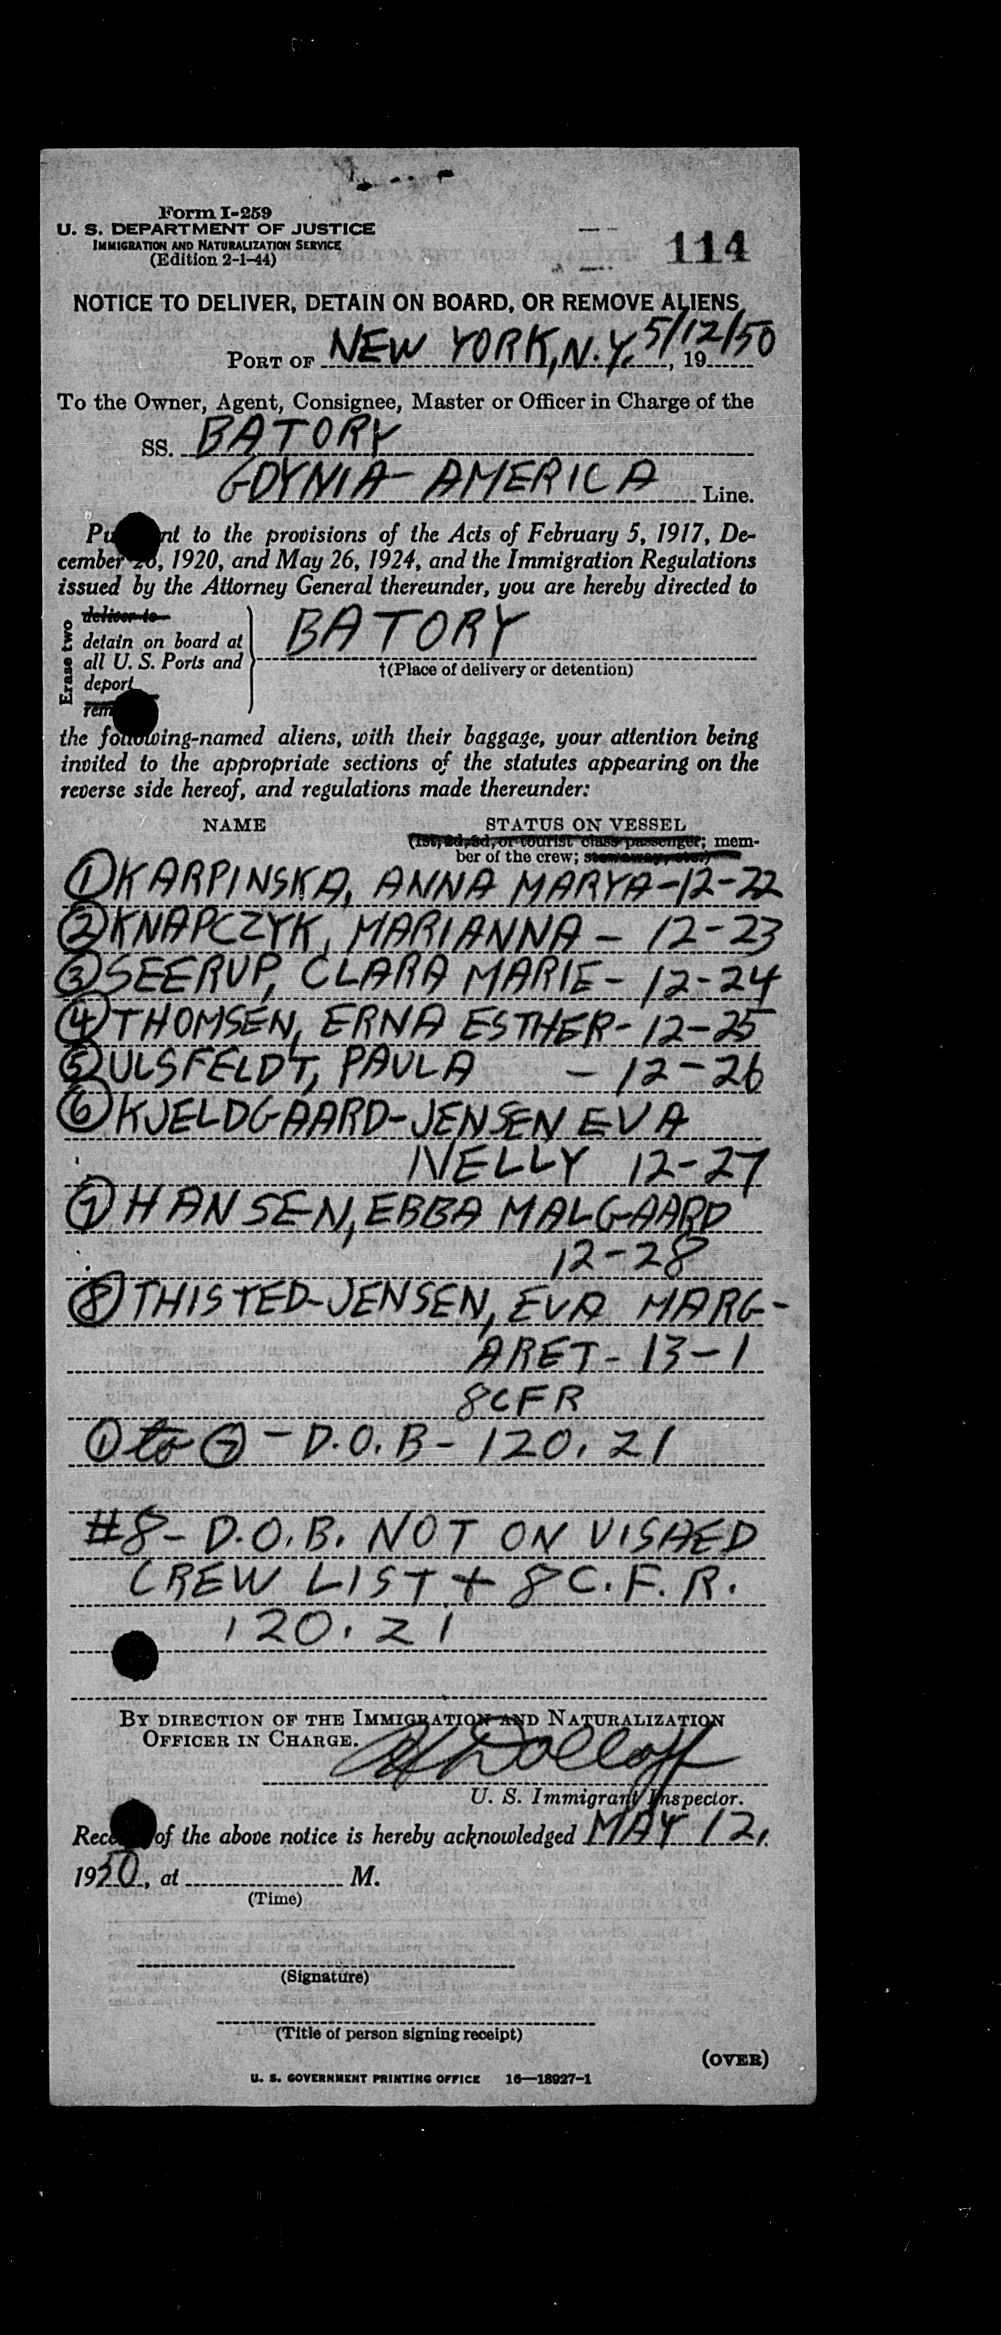 Form I-259
U. S. DEPARTMENT OF JUSTICE
IMMIGRATION AND NATURALIZATION SERVICE
(Edition 2-1-44)
114
NOTICE TO DELIVER, DETAIN ON BOARD, OR REMOVE ALIENS
PORT OF NEW YORK, N.Y. 5/12/50, 19
To the Owner, Agent, Consignee, Master or Officer in Charge of the
SS. BATORY
GDYNIA-AMERICA Line.
nt to the provisions of the Acts of February 5, 1917, De-
cember 26, 1920, and May 26, 1924, and the Immigration Regulations
issued by the Attorney General thereunder, you are hereby directed to
Erase two
deliver to
detain on board at
all U. S. Ports and
deport
BATORY
†(Place of delivery or detention)
the following-named aliens, with their baggage, your attention being
invited to the appropriate sections of the statutes appearing on the
reverse side hereof, and regulations made thereunder:
NAME STATUS ON VESSEL
(1st, 2d, 3d, or tourist class passenger; mem-
ber of the crew; stowaway, etc.)
① KARPINSKA, ANNA MARYA-12-22
② KNAPCZYK, MARIANNA - 12-23
③ SEERUP, CLARA MARIE- 12-24
④ THOMSEN, ERNA ESTHER- 12-25
⑤ ULSFELDT, PAULA - 12-26
⑥ KJELDGAARD-JENSEN EVA
NELLY 12-27
⑦ HANSEN, EBBA MALGAARD
12-28
⑧ THISTED-JENSEN, EVA MARG-
ARET- 13-1
8CFR
① to ⑦ - D.O.B- 120.21
#8- D.O.B. NOT ON VISAED
CREW LIST + 8 C.F.R.
120.21
BY DIRECTION OF THE IMMIGRATION AND NATURALIZATION
OFFICER IN CHARGE.
Dolloff
U. S. Immigrant Inspector.
of the above notice is hereby acknowledged MAY 12,
1950, at M.
(Time)
(Signature)
(Title of person signing receipt)
(OVER)
U. S. GOVERNMENT PRINTING OFFICE 16—18927-1